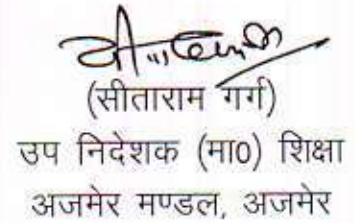 (सीताराम गर्ग)
उप निदेशक (मा0) शिक्षा
अजमेर मण्डल, अजमेर